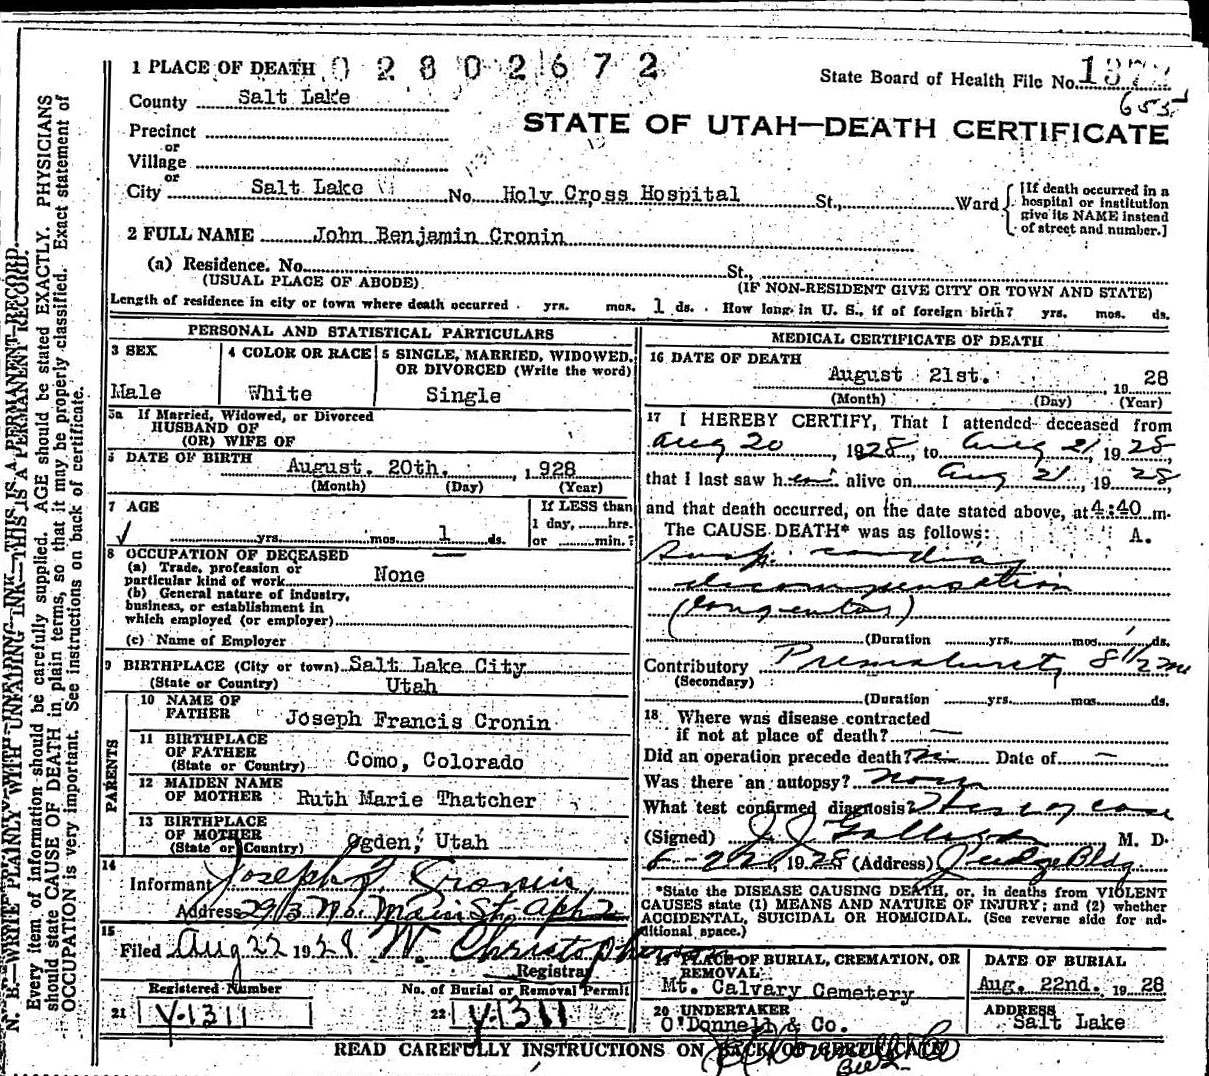 1 PLACE OF DEATH 0 2 8 0 2 6 7 2
State Board of Health File No. 1372
655
County Salt Lake
STATE OF UTAH—DEATH CERTIFICATE
Precinct
or
Village
or
City Salt Lake No. Holy Cross Hospital St., Ward
[If death occurred in a hospital or institution give its NAME instead of street and number.]
2 FULL NAME John Benjamin Cronin
(a) Residence. No. St.,
(USUAL PLACE OF ABODE) (IF NON-RESIDENT GIVE CITY OR TOWN AND STATE)
Length of residence in city or town where death occurred yrs. mos. 1 ds. How long in U. S., if of foreign birth? yrs. mos. ds.
PERSONAL AND STATISTICAL PARTICULARS
3 SEX 4 COLOR OR RACE 5 SINGLE, MARRIED, WIDOWED, OR DIVORCED (Write the word)
Male White Single
5a If Married, Widowed, or Divorced
HUSBAND OF
(OR) WIFE OF
6 DATE OF BIRTH August. 20th. , 1928
(Month) (Day) (Year)
7 AGE If LESS than
1 day, hrs.
yrs. mos. 1 ds. or min.?
8 OCCUPATION OF DECEASED
(a) Trade, profession or
particular kind of work None
(b) General nature of industry,
business, or establishment in
which employed (or employer)
(c) Name of Employer
9 BIRTHPLACE (City or town) Salt Lake City
(State or Country) Utah
PARENTS
10 NAME OF
FATHER Joseph Francis Cronin
11 BIRTHPLACE
OF FATHER
(State or Country) Como, Colorado
12 MAIDEN NAME
OF MOTHER Ruth Marie Thatcher
13 BIRTHPLACE
OF MOTHER
(State or Country) Ogden, Utah
14
Informant Joseph F. Cronin
Address 29/3 No. Main St. Apt 2
15
Filed Aug 22 1928 W. Christopherson
Registrar
Registered Number No. of Burial or Removal Permit
21 V-1311 22 V-1311
MEDICAL CERTIFICATE OF DEATH
16 DATE OF DEATH
August 21st. , 1928
(Month) (Day) (Year)
17 I HEREBY CERTIFY, That I attended deceased from
Aug 20 , 1928, to Aug 21, 1928,
that I last saw him alive on Aug 21 , 1928,
and that death occurred, on the date stated above, at 4:40 m.
The CAUSE DEATH* was as follows: A.
cardiac
decompensation
(congenital)
(Duration yrs. mos. 1 ds.
Contributory Prematurity 8 1/2 mo
(Secondary)
(Duration yrs. mos. ds.
18 Where was disease contracted
if not at place of death? —
Did an operation precede death? No Date of —
Was there an autopsy? None
What test confirmed diagnosis? History of case
(Signed) J J Galligan M. D.
8-22, 1928 (Address) Judge Bldg.
*State the DISEASE CAUSING DEATH, or, in deaths from VIOLENT
CAUSES state (1) MEANS AND NATURE OF INJURY; and (2) whether
ACCIDENTAL, SUICIDAL OR HOMICIDAL. (See reverse side for ad-
ditional space.)
PLACE OF BURIAL, CREMATION, OR REMOVAL DATE OF BURIAL
Mt. Calvary Cemetery Aug. 22nd. 1928
20 UNDERTAKER ADDRESS
O'Donnell & Co. Salt Lake
READ CAREFULLY INSTRUCTIONS ON BACK OF CERTIFICATE
N. B.—WRITE PLAINLY WITH UNFADING INK—THIS IS A PERMANENT RECORD.
Every item of information should be carefully supplied. AGE should be stated EXACTLY. PHYSICIANS
should state CAUSE OF DEATH in plain terms, so that it may be properly classified. Exact statement of
OCCUPATION is very important. See instructions on back of certificate.